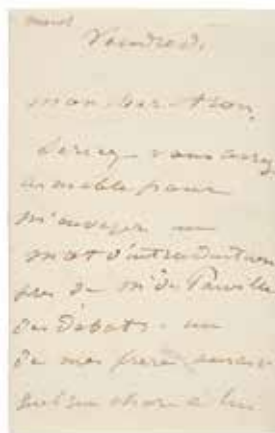 Vendredi
mon cher Aron,
Seriez vous assez
aimable pour
m'envoyer un
mot d'introduction
près de Mr de Parville
des Débats. un
de mes frères aurait
quelque chose à lui